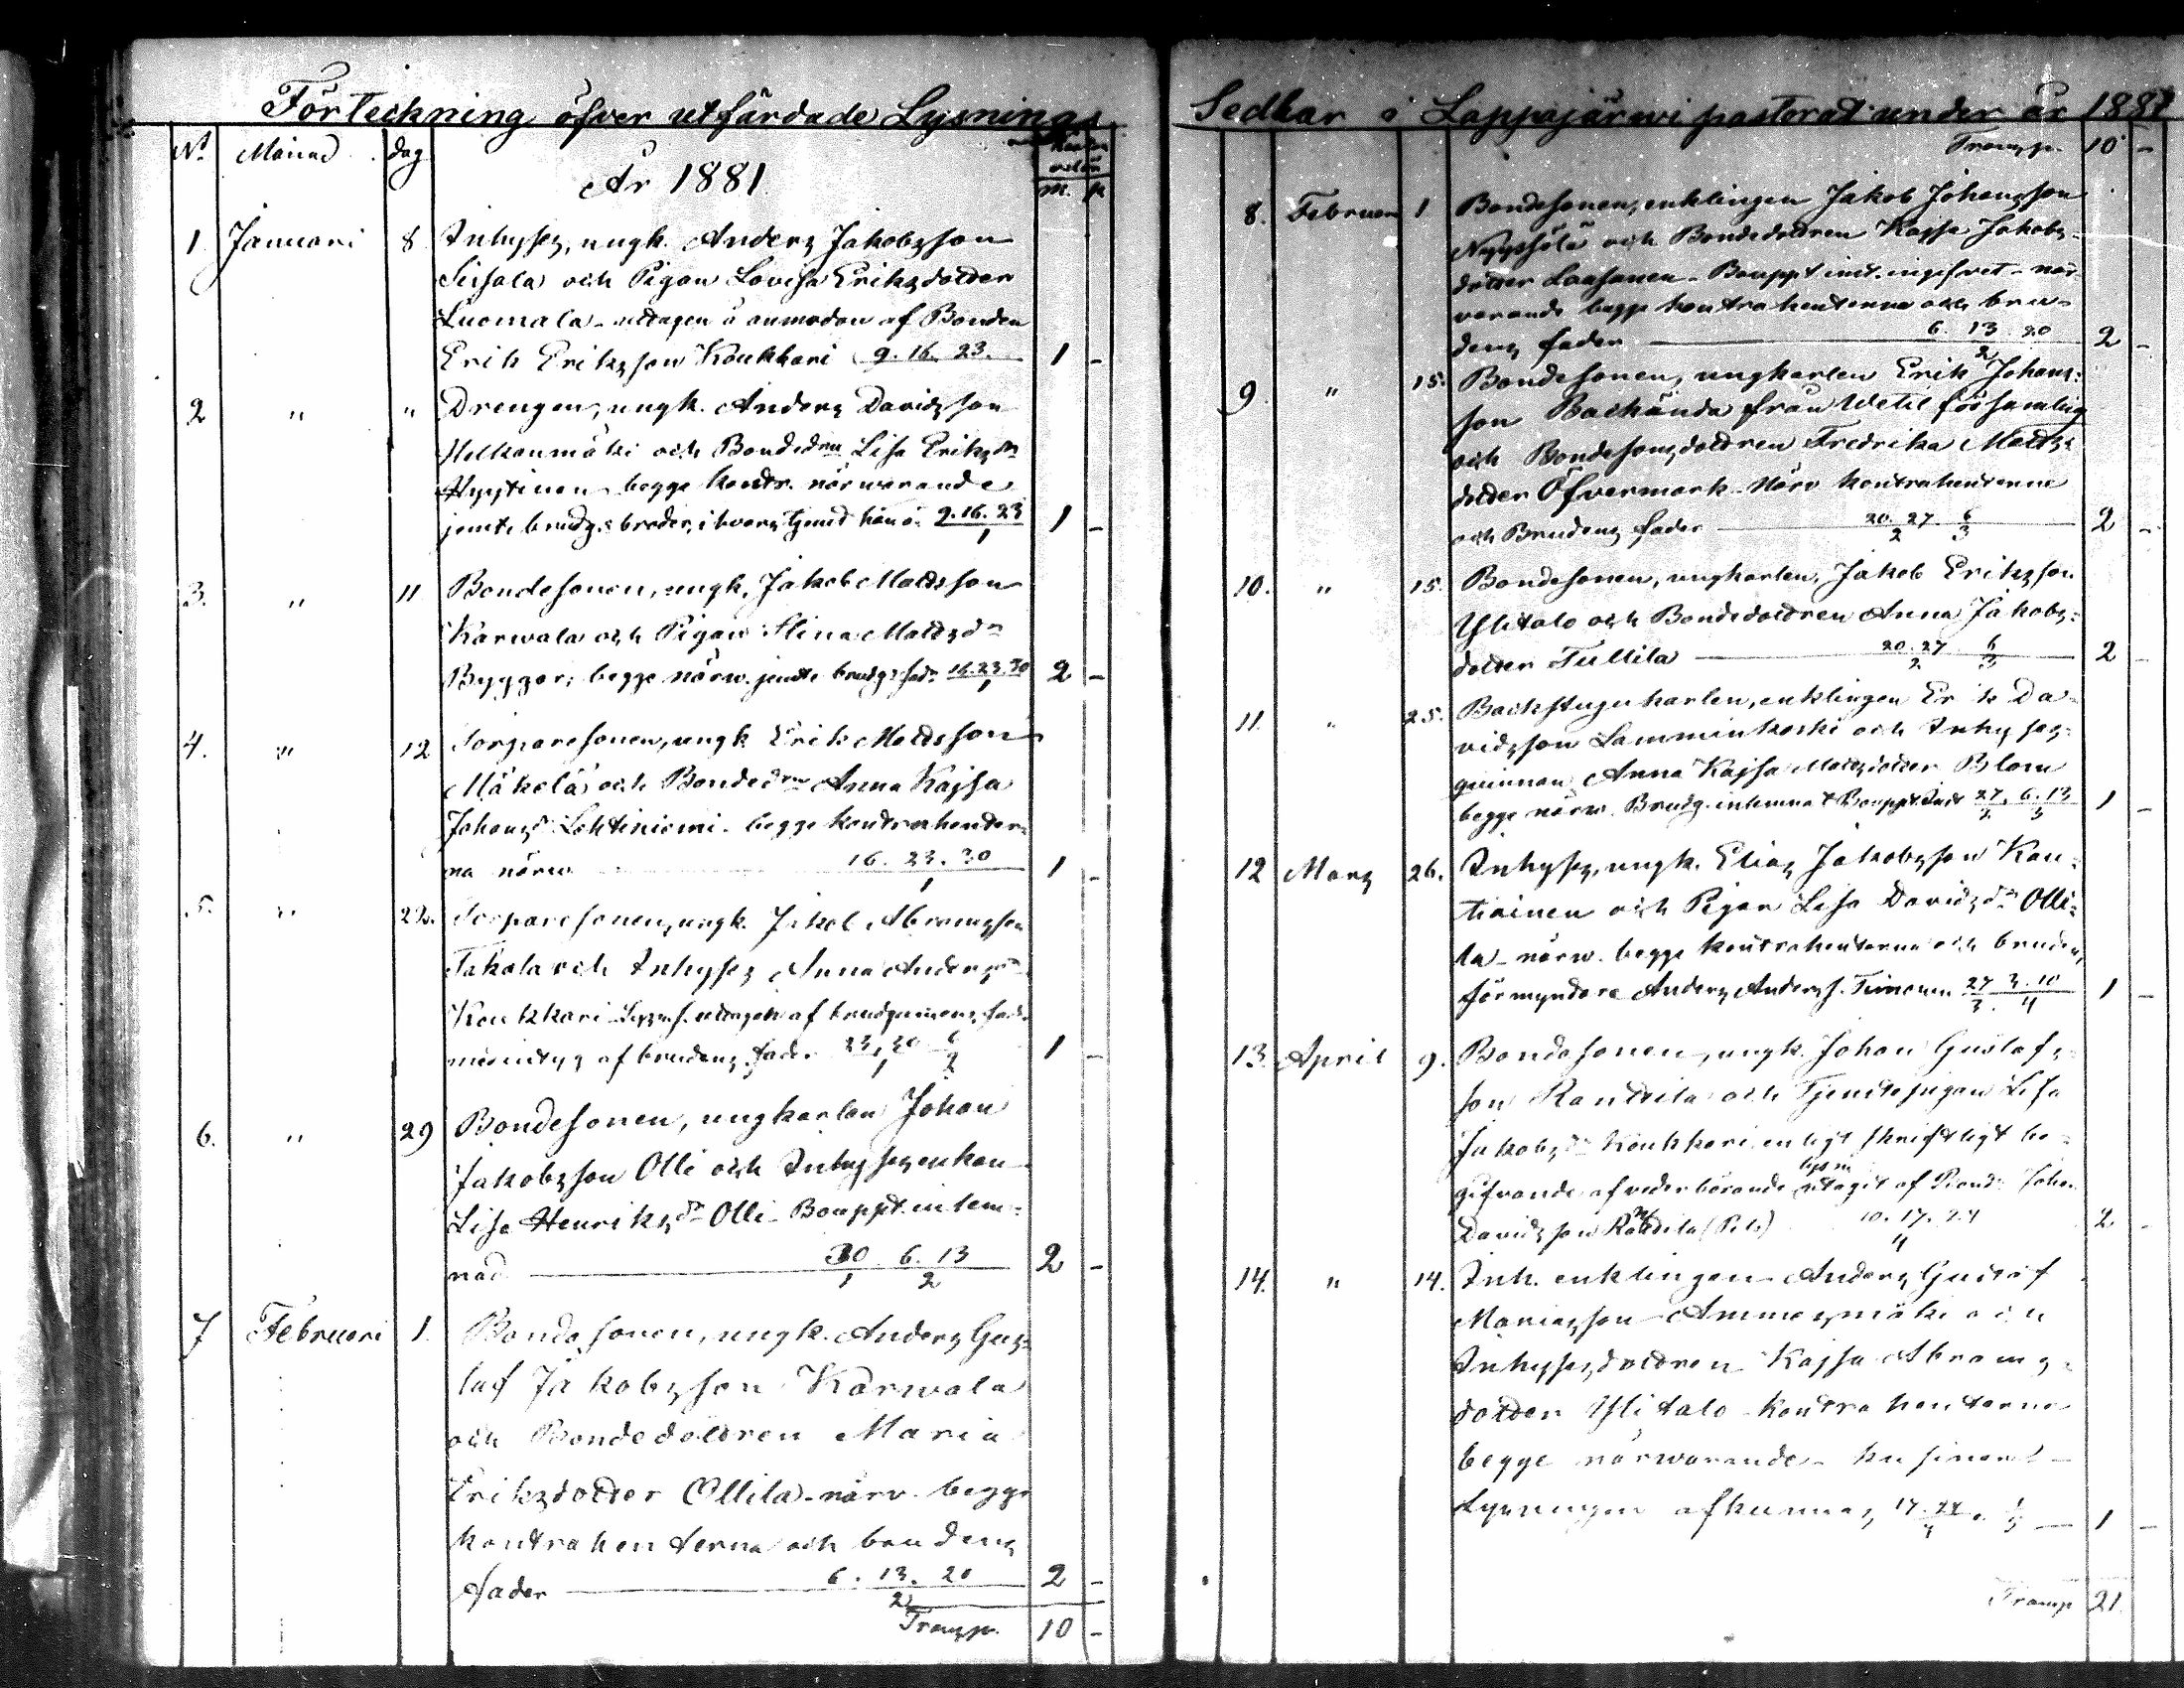 Förteckning öfver utfärdade Lysnings
No Månad dag
År 1881
m. p
1. Januari 8 Inhyses, ungk. Anders Jakobsson
Sisala och Pigan Lovisa Eriksdotter
Luomala - uttagen å anmodan af Bonden
Erik Eriksson Koukkari 9. 16. 23. 1 -
2 " " Drengen, ungk. Anders Davidsson
och Bonded:rn Lisa Eriksdr
Hyytinen begge kontr. närwarande
jemte brudg:s broder, i hvars tjenst han är 9. 16. 23 / 1 1 -
3. " 11 Bondesonen, ungk. Jakob Mattsson
Karwala och Pigan Stina Mattsdr
Byggar; begge närw. jemte brudg:s fadr 16. 23. 30 / 1 2 -
4. " 12 Torparesonen, ungk Erik Mattsson
Mäkelä och Bonded:rn Anna Kajsa
Johansdr Lehtiniemi - begge kontrahenter-
na närw 16. 23. 30 / 1 1 -
5. " 22. Torparesonen, ungk. Jakob Abramsson
Takala och Inhyses Anna Andersdr
Koukkari uttagen af brudgummens fadr
af brudens fader 23, 30 / 1 6 / 2 1 -
6. " 29 Bondesonen, ungkarlen Johan
Jakobsson Olli och Inhysesenkan
Lisa Henriksdr Olli - Bouppt. inlem-
nad 30 / 1 6. 13 / 2 2 -
7 Februari 1. Bondesonen, ungk. Anders Gus-
taf Jakobsson Karwala
och Bondedottren Maria
Eriksdotter Ollila - närv. begge
kontrahenterna och brudens
fader 6. 13. 20 / 2 2 -
Transp. 10 -
Sedlar i Lappajärwi pastorat under år 1881
Transp. 10 -
8. Februari 1 Bondesonen, enklingen Jakob Johansson
och Bondedottren Kajsa Jakobs-
dotter Laasanen - Bouppt inst. - när-
varande begge kontrahenterna och bru-
dens fader 6. 13. 20 / 2 2 -
9. " 15. Bondesonen, ungkarlen Erik Johans-
son Backända från Wetil församling
och Bondesonsdottren Fredrika Matts-
dotter Öfvermark - Närv kontrahenterne
och Brudens fader 20. 27 / 2 6 / 3 2 -
10. " 15. Bondesonen, ungkarlen, Jakob Eriksson
Ylitalo och Bondedottren Anna Jakobs-
dotter Tullila 20. 27 / 2 6 / 3 2 -
11. " 25. Backstugukarlen, enklingen Erik Da-
vidsson Lamminkoski och Inhyses-
quinnan Anna Kajsa Mattsdotter Blom
begge närw. Brudg. inlemnat Bouppt. Inst 27 / 2 6. 13 / 3 1 -
12 Mars 26. Inhyses, ungk. Elias Jakobsson Kau-
tiainen och Pigan Lisa Davidsdr Olli-
la - närw. begge kontrahenterna och brudens
förmyndare Anders Anderss. Timonen 27 / 3 3. 10 / 4 1 -
13. April 9. Bondesonen, ungk. Johan Gustafs-
son Rantila och Tjenstepigan Lisa
Jakobsdr Koukkari enligt skriftligt be-
gifvande af vederbörande uttagit af Bond: Johan
Davidsson 10. 17. 24 / 4 2 -
14. " 14. Inh. enklingen Anders Gustaf
Mariasson Ammesmäki och
Inhysesdottren Kajsa Abrams-
dotter Ylitalo - kontrahenterna
begge närwarande -
Lysningen afkunnas 17. 24 / 4 1 / 5 1 -
Transp 21.